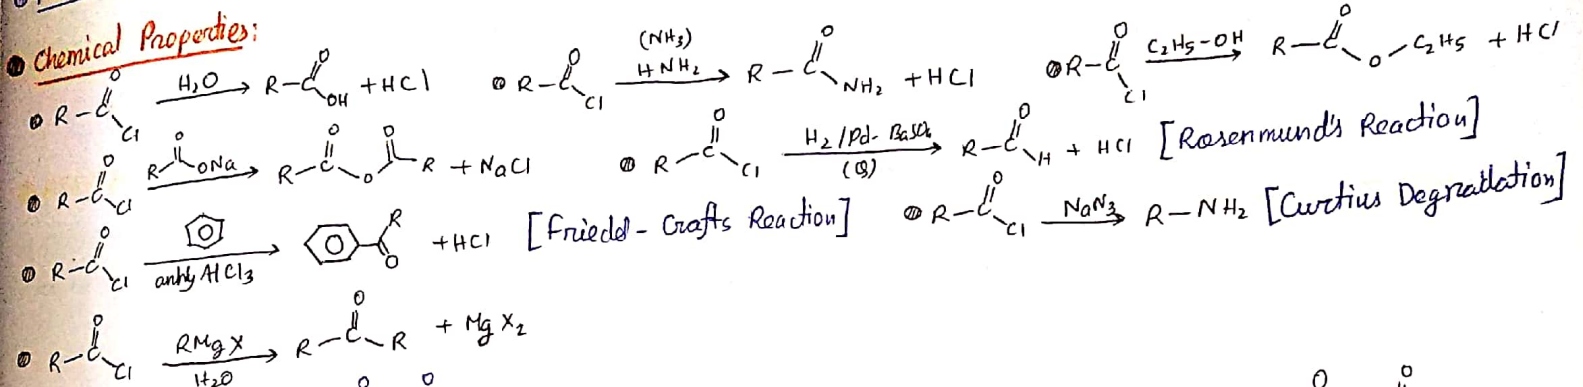 Chemical Properties:
R-C(=O)-Cl —H₂O→ R-C(=O)-OH + HCl
R-C(=O)-Cl —(NH₃) HNH₂→ R-C(=O)-NH₂ + HCl
R-C(=O)-Cl —C₂H₅-OH→ R-C(=O)-O-C₂H₅ + HCl
R-C(=O)-Cl —R-C(=O)-ONa→ R-C(=O)-O-C(=O)-R + NaCl
R-C(=O)-Cl —H₂/Pd-BaSO₄ (Q)→ R-C(=O)-H + HCl [Rosenmund's Reaction]
R-C(=O)-Cl —anhy AlCl₃→ C(=O)-R + HCl [Friedel-Crafts Reaction]
R-C(=O)-Cl —NaN₃→ R-NH₂ [Curtius Degradation]
R-C(=O)-Cl —RMgX H₂O→ R-C(=O)-R + MgX₂
O O O O